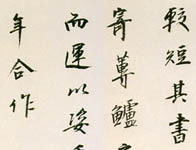 較短其書
寄蓴鱸
而運以姿
年合作